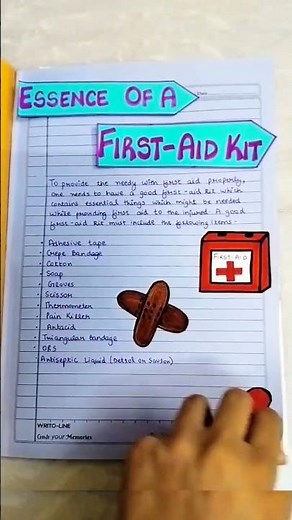 ESSENCE OF A
FIRST-AID KIT
To provide the needy with first aid properly,
one needs to have a good first-aid kit which
contains essential things which might be needed
while providing first aid to the injured. A good
first-aid kit must include the following items:
Adhesive tape
Crepe Bandage
Cotton
Soap
Gloves
Scissor
Thermometer
Pain Killer
Antacid
Triangular bandage
ORS
Antiseptic Liquid (Dettol or Savlon)
FIRST-AID
WRITO-LINE
Craft your Memories